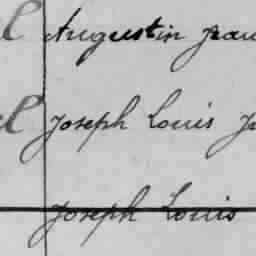 Augustin
Joseph Louis
Joseph Louis